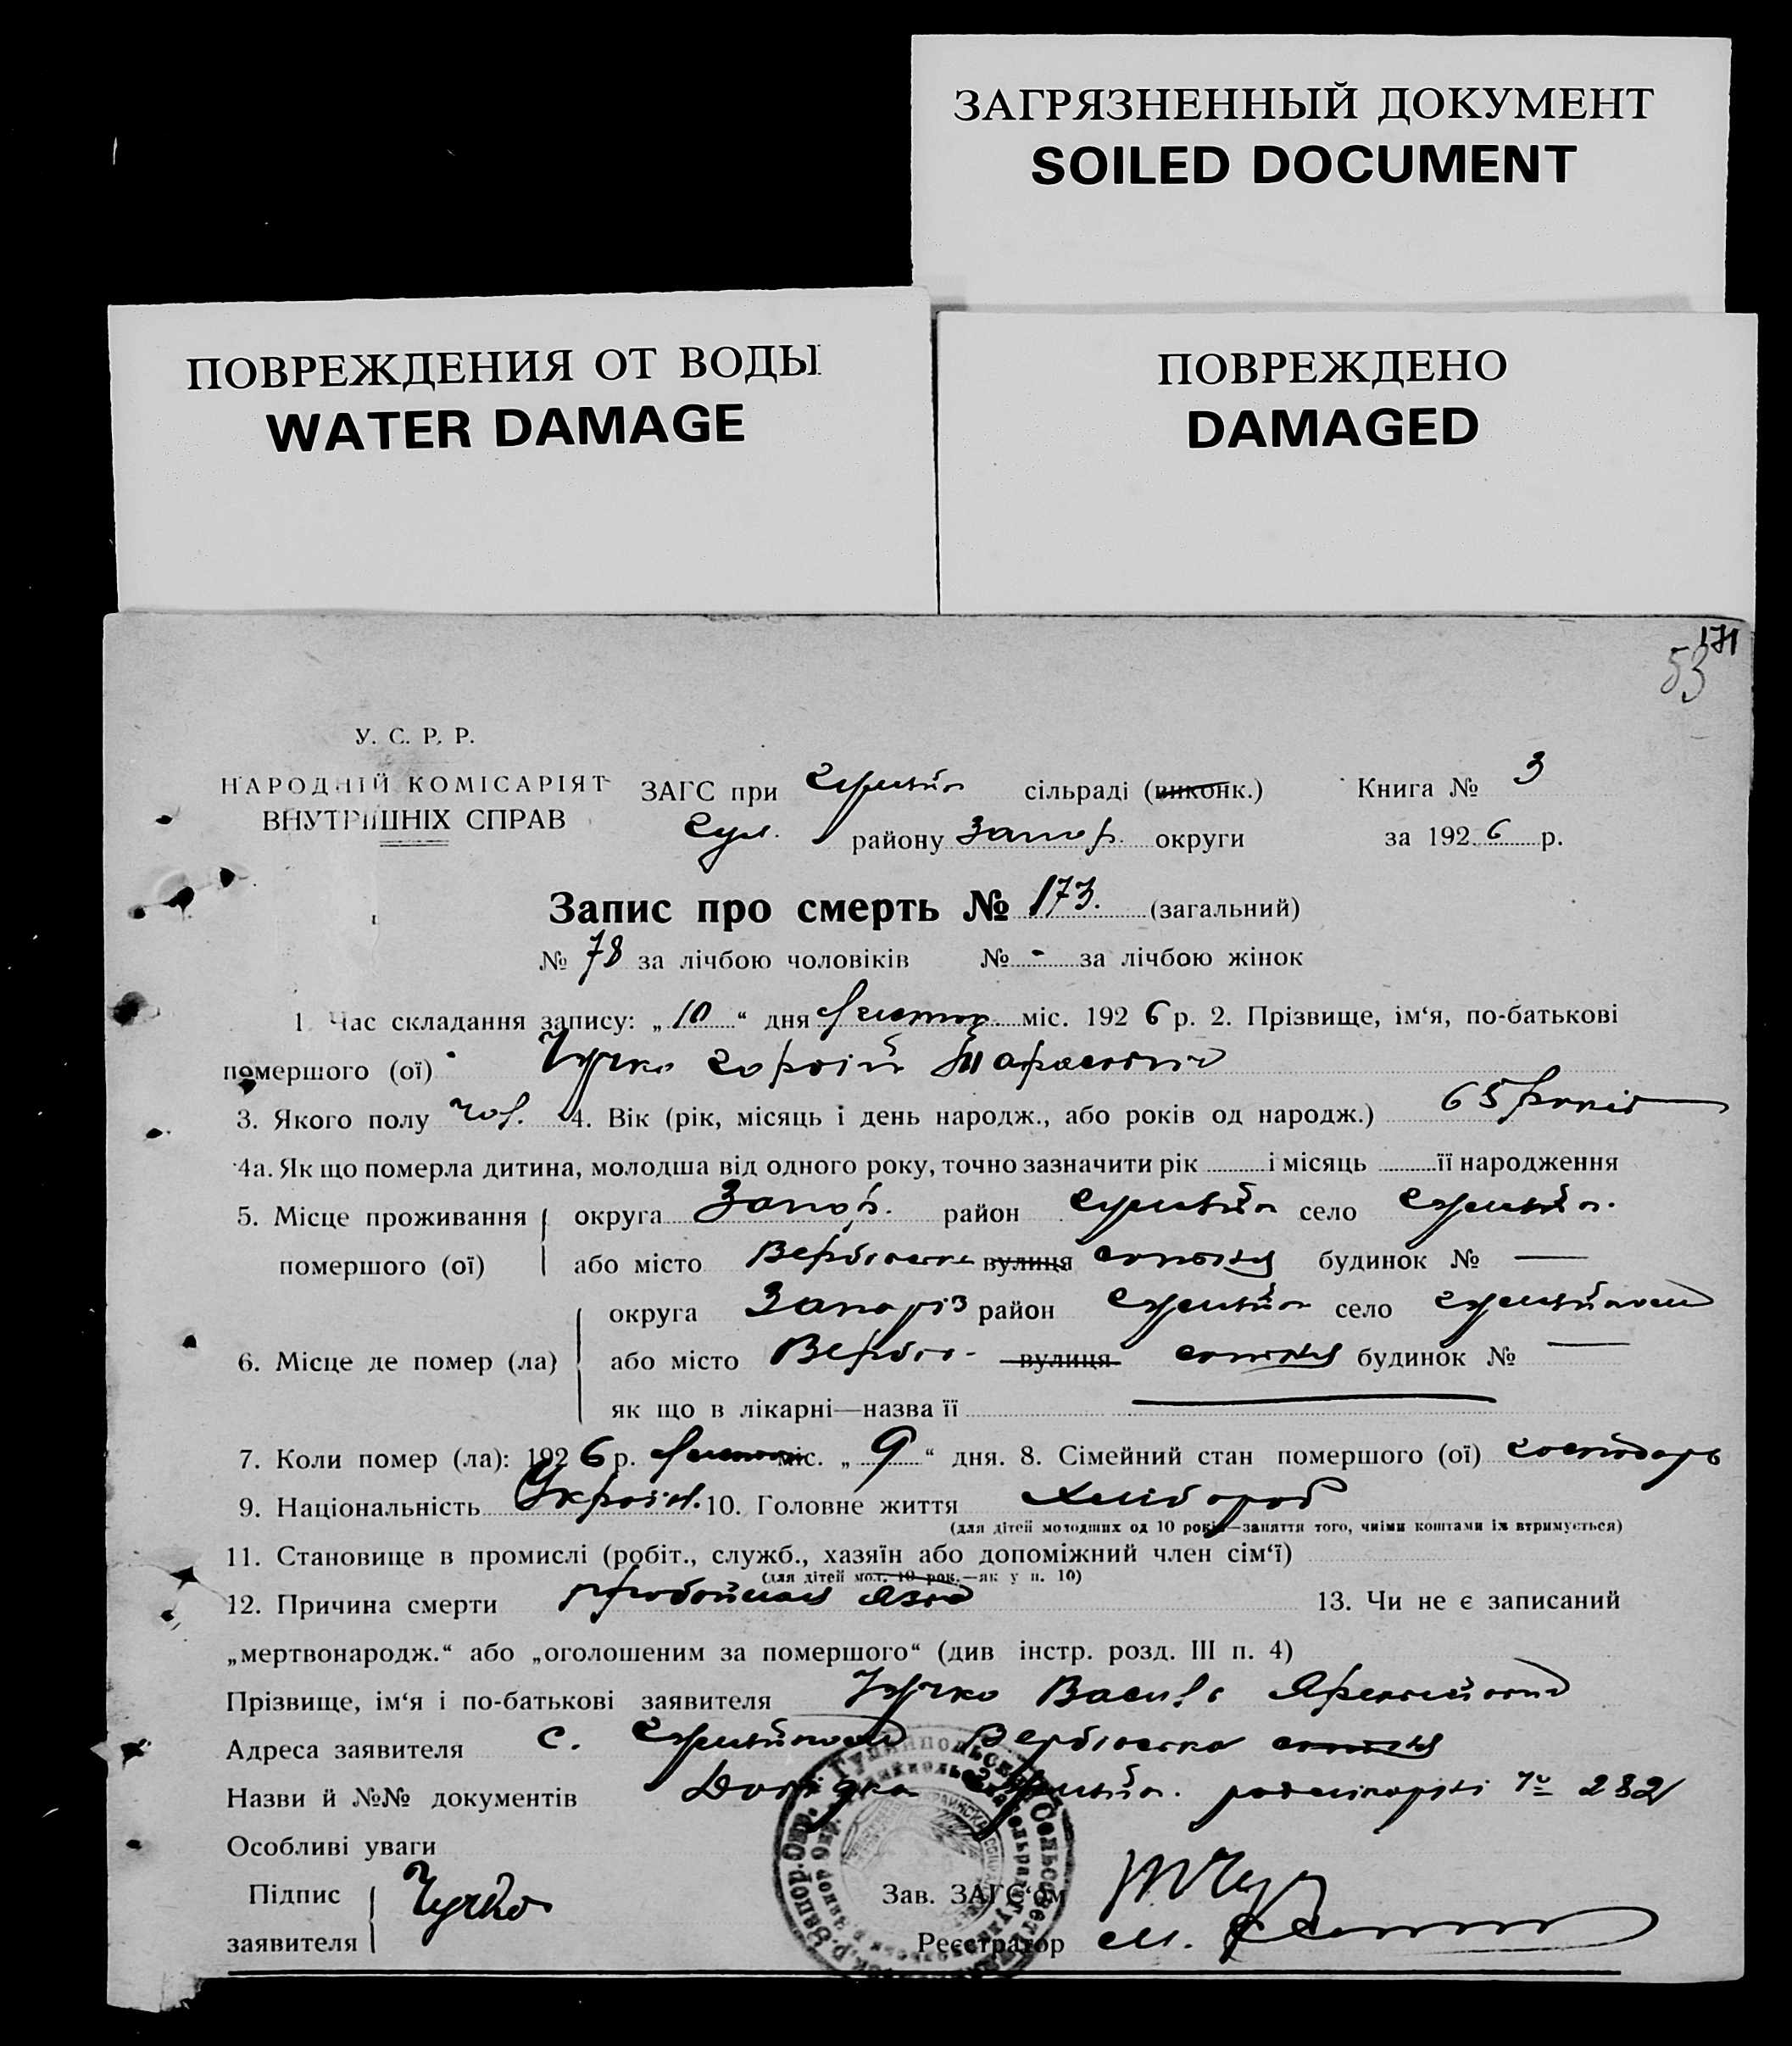 ЗАГРЯЗНЕННЫЙ ДОКУМЕНТ
SOILED DOCUMENT
ПОВРЕЖДЕНИЯ ОТ ВОДЫ
WATER DAMAGE
ПОВРЕЖДЕНО
DAMAGED
171
53
У. С. Р. Р.
НАРОДНІЙ КОМІСАРІЯТ
ВНУТРІШНІХ СПРАВ
ЗАГС при Гуляйп сільраді (виконк.) Книга № 3
Гул. району Запор. округи за 1926 р.
Запис про смерть № 173. (загальний)
№ 78 за лічбою чоловіків № - за лічбою жінок
1. Час складання запису: „10“ дня міс. 1926 р. 2. Прізвище, ім‘я, по-батькові
помершого (ої) Чучко Тарасович
3. Якого полу чол. 4. Вік (рік, місяць і день народж., або років од народж.) 65 років
4а. Як що померла дитина, молодша від одного року, точно зазначити рік і місяць її народження
5. Місце проживання округа Запор. район Гуляйп село Гуляйп.
помершого (ої) або місто Вербівська вулиця сотня будинок № —
округа Запоріз район Гуляйп село Гуляйполе
6. Місце де помер (ла) або місто Вербів- вулиця сотня будинок № —
як що в лікарні—назва її —
7. Коли помер (ла): 1926 р. міс. „9“ дня. 8. Сімейний стан помершого (ої) господарь
9. Національність Україн. 10. Головне життя Хлібороб
(для дітей молодших од 10 років—заняття того, чиїми коштами їх втримується)
11. Становище в промислі (робіт., служб., хазяїн або допоміжний член сім‘ї)
(для дітей мол. 10 рок.—як у п. 10)
12. Причина смерти язва 13. Чи не є записаний
„мертвонародж.“ або „оголошеним за помершого“ (див інстр. розд. III п. 4)
Прізвище, ім‘я і по-батькові заявителя Чучко Василь
Адреса заявителя с. Гуляйполе Вербівська сотня
Назви й №№ документів Довідка Гуляйп. № 282
Особливі уваги
Підпис заявителя Чучко
Зав. ЗАГС‘ом
Реєстратор М.